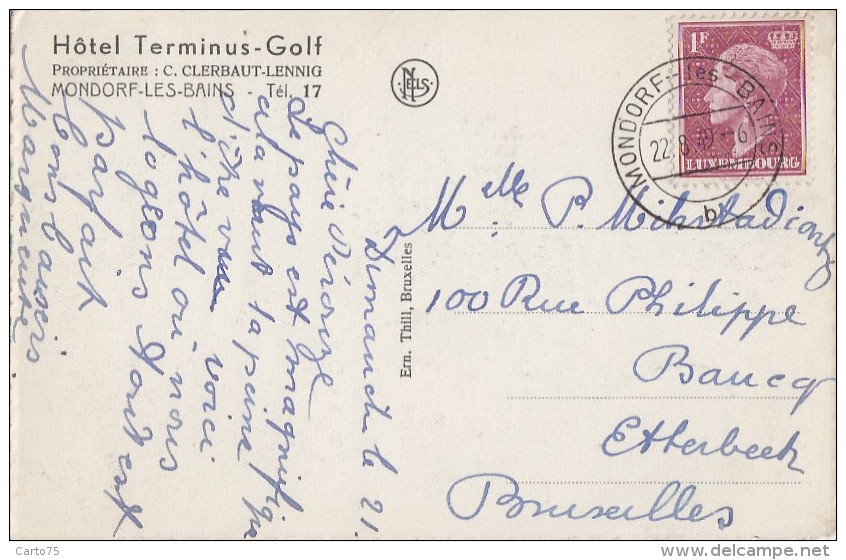 Hôtel Terminus-Golf
PROPRIÉTAIRE : C. CLERBAUT-LENNIG
MONDORF-LES-BAINS - Tél. 17
NELS
1F
LUXEMBOURG
MONDORF-les-BAINS
22.8.49-6
b
Dimanche le 21.
Chère
Le pays est magnifique
et la vaut la peine
d'être vu voici
l'hôtel où nous
logeons tout est
parfait
Bons baisers
Marguerite
Ern. Thill, Bruxelles
Melle P.
100 Rue Philippe
Baucq
Etterbeek
Bruxelles
Carto75
DELCAMPE.NET